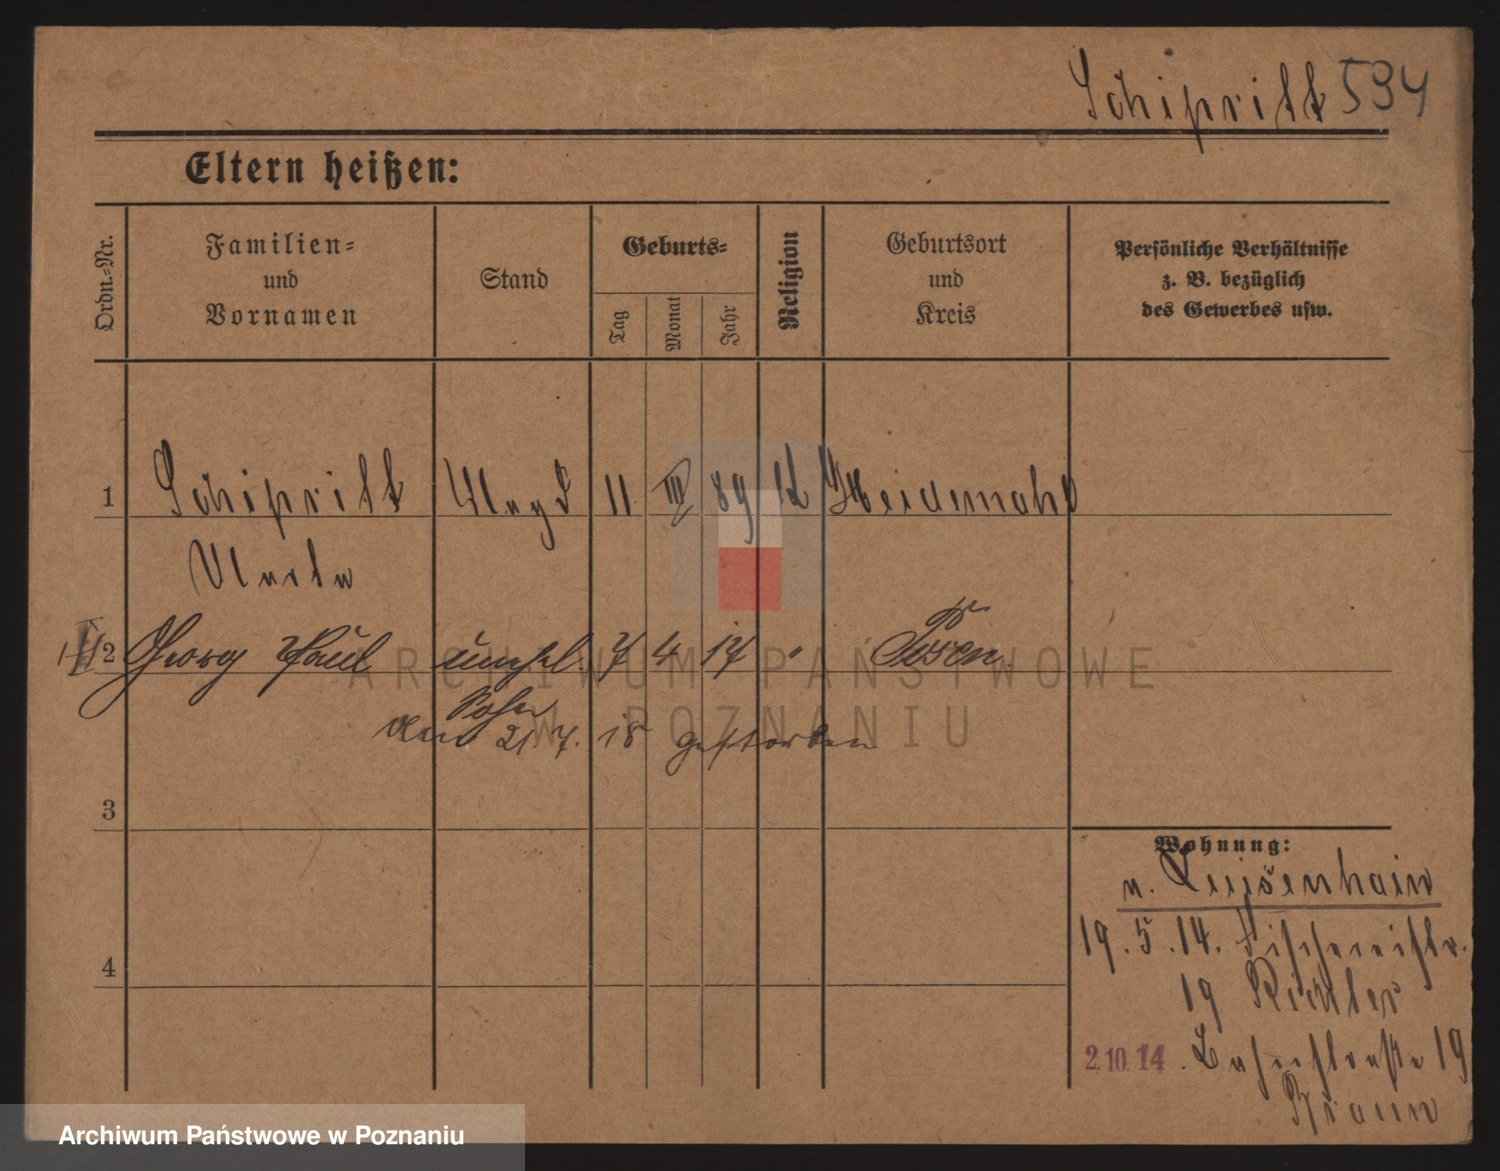 Schipritt 534
Eltern heißen:
Ordn.-Nr.
Familien-
und
Vornamen
Stand
Geburts-
Tag
Monat
Jahr
Religion
Geburtsort
und
Kreis
Persönliche Verhältnisse
z. B. bezüglich
des Gewerbes usw.
1 Schipritt Magd 11 III 89 k Heidemühl
Marta
2 Georg Paul unehel. 7 4 17 " Posen
Sohn
den 21. 7. 18 gestorben
3
4
Wohnung:
n. Luisenhain
19. 5. 14. Fischereistr.
19 Richter
2.10.14. 19
Braun
ARCHIWUM PAŃSTWOWE
W POZNANIU
Archiwum Państwowe w Poznaniu